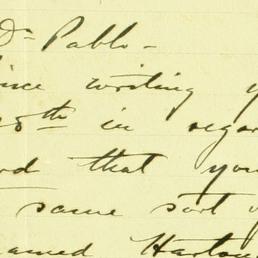 Dr Pablo -
ince writing y
8th in regar
rd that you
same sort
amed Harton